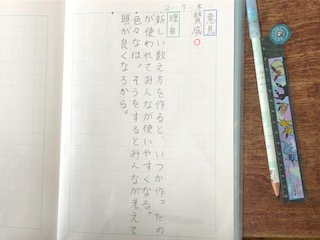 12.7.木
意見
賛成
理由
・新しい数え方を作ると、いつか作ったの
が使われてみんなが使いやすくなる。
・色々なはっそうをするとみんなが考えて
頭が良くなるから。